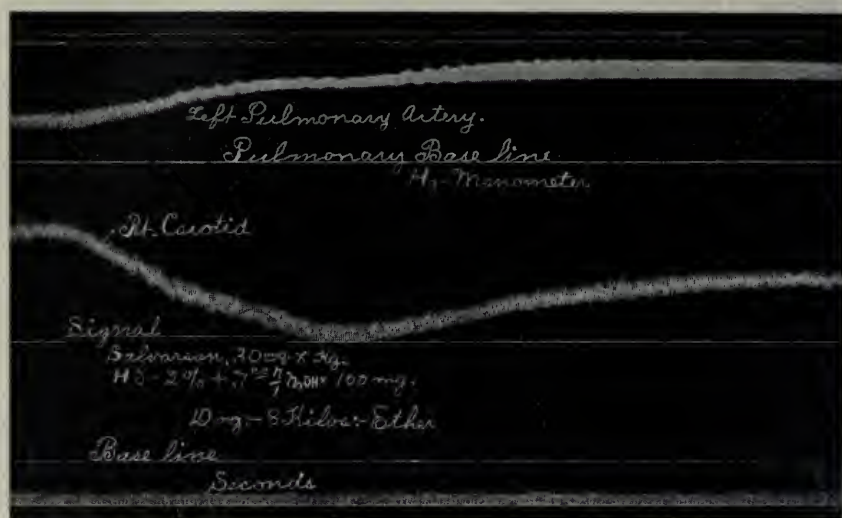 Left Pulmonary Artery.
Pulmonary Base line
Hg-Manometer
Rt. Carotid
Signal
Salvarsan, 30mg x Kg.
2% + .7 100 mg.
Dog-8 Kilos-Ether
Base line
Seconds